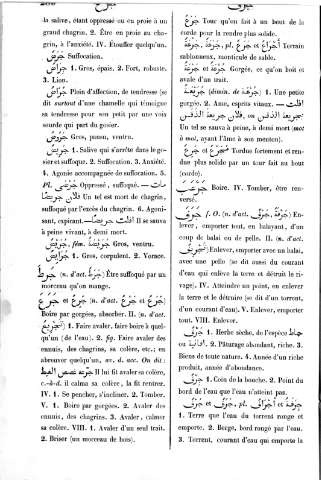 la salive, étant oppressé ou en proie à un
grand chagrin. 2. Être en proie au cha-
grin, à l'anxiété. IV. Étouffer quelqu'un.
جَرَضٌ Suffocation.
جُرَاضٌ 1. Gros, épais. 2. Fort, robuste.
3. Lion.
جُرَاضٌ Plein d'affection, de tendresse (se
dit surtout d'une chamelle qui témoigne
sa tendresse pour son petit par une voix
sourde qui part du gosier.
Gros, pansu, ventru.
جَرِيضٌ 1. Salive qui s'arrête dans le go-
sier et suffoque. 2. Suffocation. 3. Anxiété.
4. Agonie accompagnée de suffocation. 5.
Pl. جَرْضَى Oppressé, suffoqué. — مات
جريضا Un tel est mort de chagrin,
suffoqué par l'excès du chagrin. 6. Agoni-
sant, expirant. — Il se sauva
à peine vivant, à demi mort.
fém. Gros, ventru.
1. Gros, corpulent. 2. Vorace.
جَرِطَ (n. d'act. جَرَطٌ) Être suffoqué par un
morceau qu'on mange.
جَرَعَ et جَرِعَ (n. d'act. جَرْعٌ et جَرَعٌ)
Boire par gorgées, absorber. II. (n. d'act.
تجريع) 1. Faire avaler, faire boire à quel-
qu'un (de l'eau). 2. fig. Faire avaler des
ennuis, des chagrins, sa colère, etc.; en
abreuver quelqu'un, av. d. acc. On dit :
جرّعه غصص الغيظ Il lui fit avaler sa colère,
c.-à-d. il calma sa colère, la fit rentrer.
IV. 1. Se pencher, s'incliner. 2. Tomber.
V. 1. Boire par gorgées. 2. Avaler des
ennuis, des chagrins. 3. Avaler, calmer
sa colère. VIII. 1. Avaler d'un seul trait.
2. Briser (un morceau de bois).
جَرَعٌ Tour qu'on fait à un bout de la
corde pour la rendre plus solide.
جَرْعَةٌ, جَرَعَةٌ, pl. جَرَعٌ et أَجْرَاعٌ Terrain
sablonneux, monticule de sable.
جُرْعَةٌ et جَرْعَةٌ Gorgée, ce qu'on boit et
avale d'un trait.
جُرَيْعَةٌ (dimin. de جُرْعَةٌ) 1. Une petite
gorgée. 2. Ame, esprits vitaux. — أفلت
فلان جريعة الذقن ou, بجريعة الذقن
Un tel se sauva à peine, à demi mort (mot
à mot, ayant l'âme à son menton).
مُجَرَّعٌ et Tordue fortement et ren-
due plus solide par un tour fait au bout
(corde).
جَرْعَبَ Boire. IV. Tomber, être ren-
versé.
جَرَفَ f. O. (n. d'act. جَرْفٌ, جَرْفَةٌ) En-
lever, emporter tout, en balayant, d'un
coup de balai ou de pelle. II. (n. d'act.
تجريف) Enlever, emporter avec un balai,
avec une pelle (se dit aussi du courant
d'eau qui enlève la terre et détruit le ri-
vage). IV. Atteindre au point, en enlever
la terre et le détruire (se dit d'un torrent,
d'un courant d'eau). V. Enlever, emporter
tout. VIII. Enlever.
جَرْفٌ 1. Herbe sèche, de l'espèce حماط
ou افانيا 2. Pâturage abondant, riche. 3.
Biens de toute nature. 4. Année d'un riche
produit, année d'abondance.
جِرْفٌ 1. Coin de la bouche. 2. Point du
bord de l'eau que l'eau n'atteint pas.
جُرْفٌ et جُرُفٌ, pl. أَجْرَافٌ et جِرَفَةٌ
1. Terre que l'eau du torrent ronge et
emporte. 2. Berge, bord rongé par l'eau.
3. Torrent, courant d'eau qui emporte la